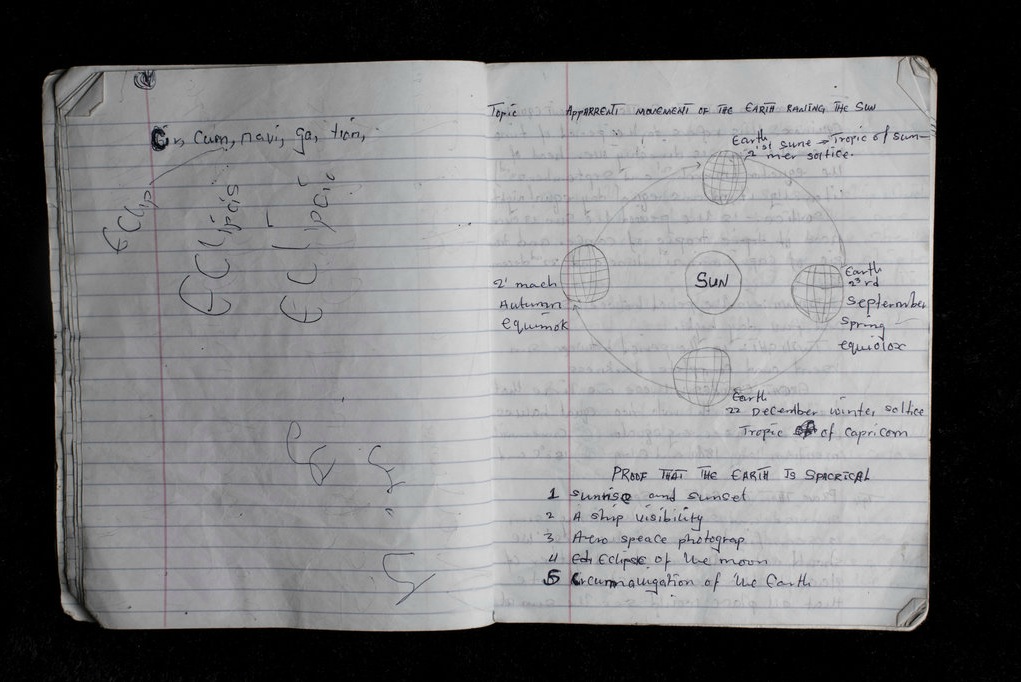 Cir, cum, navi, ga, tion,
EClip
ECLipcis
ECLipcic
Topic APPARRENT MOVEMENT OF THE EARTH RANING THE SUN
Earth
21st sune → Tropic of sum-
mer soltice.
SUN
21 mach
Autumn
equinok
Earth
23rd
September
Spring
equiolox
Earth
22 December winter soltice
Tropic of Capricorn
PROOF THAT THE EARTH IS SPACRICAL
1 sunrise and sunset
2 A ship visibility
3 Aero speace photograp
4 Eclipse of the moon
5 Circumnavigation of the Earth